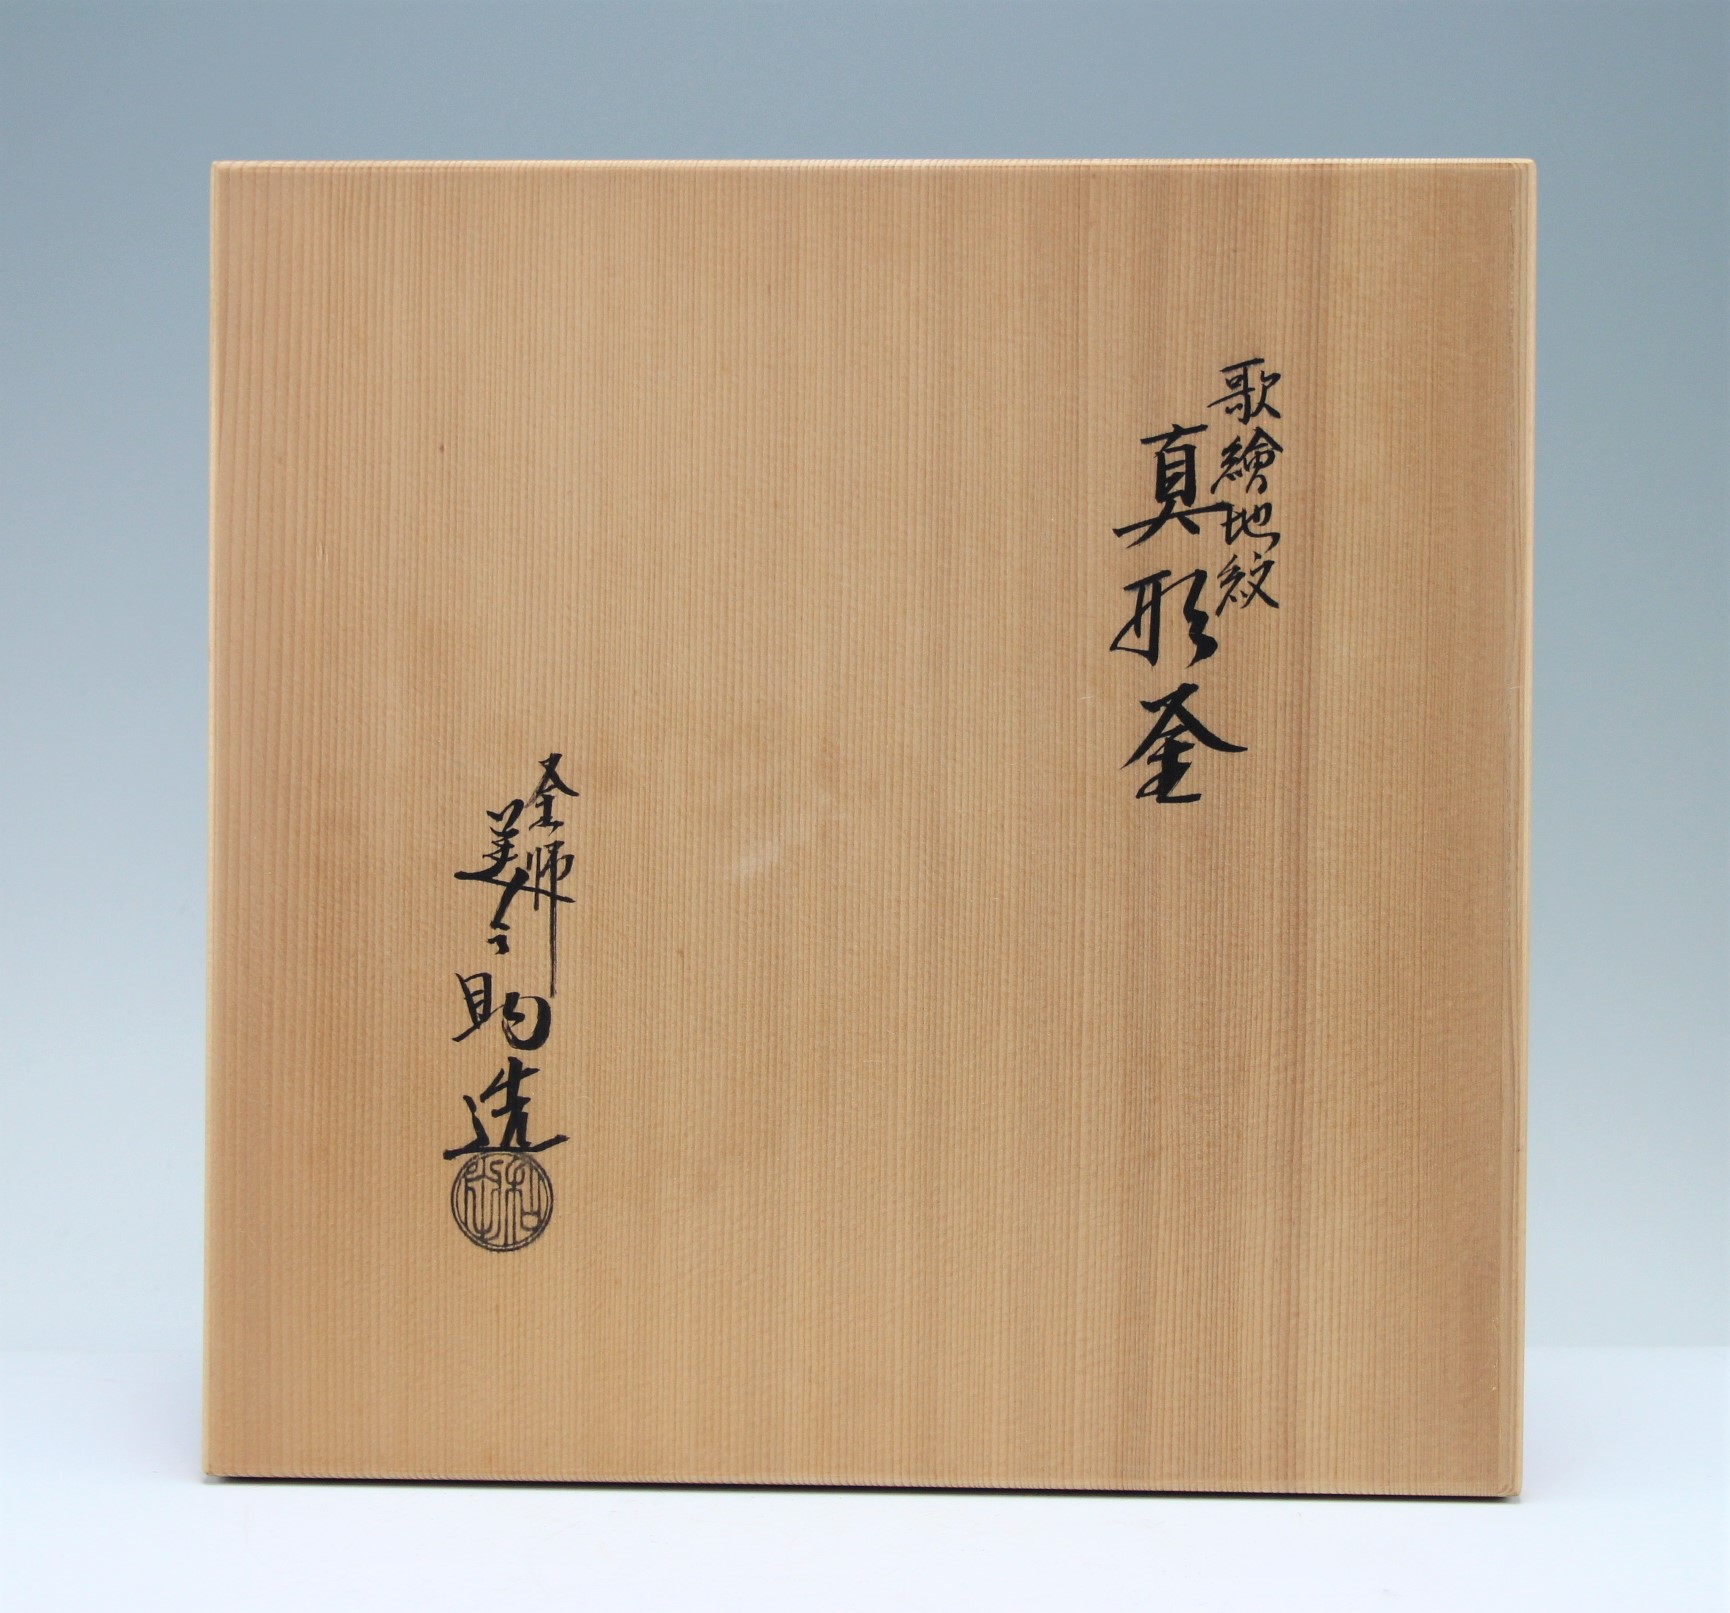 歌繪地紋
真形釜
釜師
美之助造